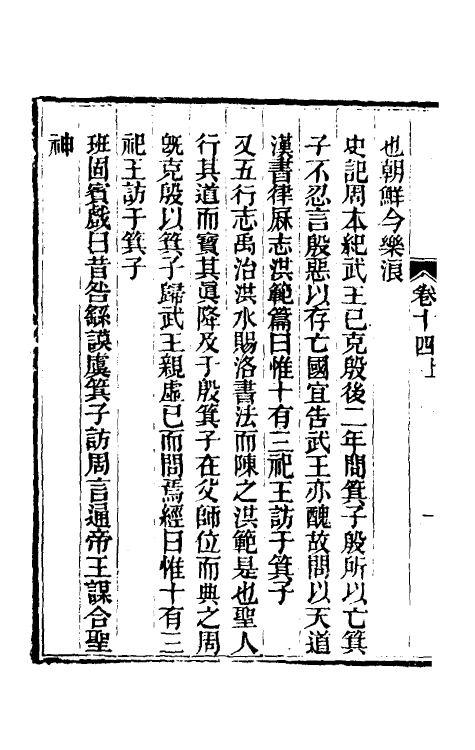 卷十四上
一
也朝鮮今樂浪
史記周本紀武王已克殷後二年問箕子殷所以亡箕
子不忍言殷惡以存亡國宜告武王亦醜故問以天道
漢書律厤志洪範篇曰惟十有三祀王訪于箕子
又五行志禹治洪水賜洛書法而陳之洪範是也聖人
行其道而寶其眞降及于殷箕子在父師位而典之周
旣克殷以箕子歸武王親虛已而問焉經曰惟十有三
祀王訪于箕子
班固賓戲曰昔咎繇謨虞箕子訪周言通帝王謀合聖
神